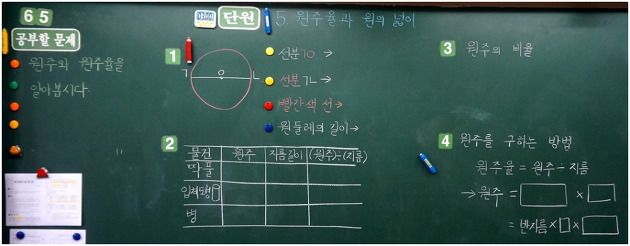 6 5
공부할 문제
원주와 원주율을
알아봅시다
단원 5. 원주율과 원의 넓이
1
ㄱ ㅇ ㄴ
선분ㄱㅇ →
선분ㄱㄴ →
빨간색 선→
원둘레의 길이→
2
물건 원주 지름길이 (원주)÷(지름)
딱풀
병
3 원주의 비율
4 원주를 구하는 방법
원주율 = 원주÷지름
→ 원주 = □ × □
= 반지름×□×□